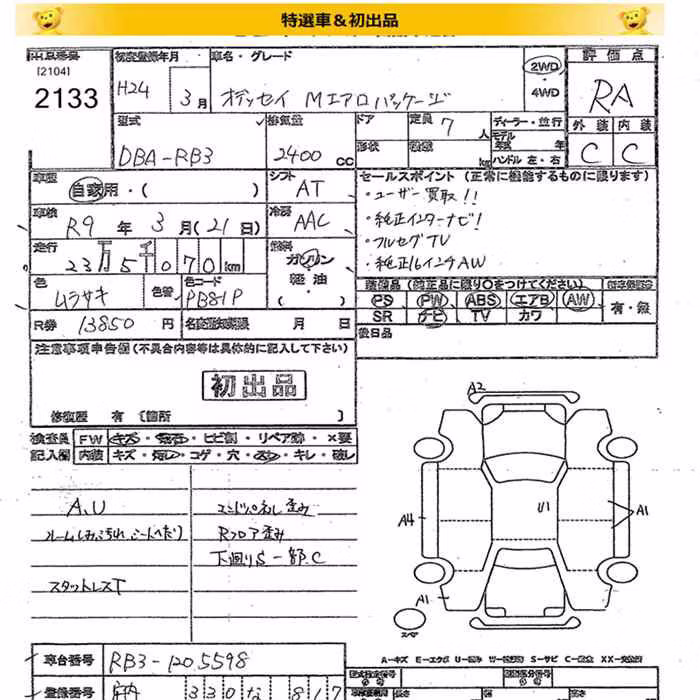 特選車＆初出品
[2104]
2133
初度登録年月
H24 3月
車名・グレード
オデッセイ Mエアロパッケージ
2WD
・
4WD
評価点
RA
外装 内装
C C
型式
DBA-RB3
排気量
2400 cc
ドア
形状
定員 7 人
積載 kg
ディーラー・並行
モデル年式 年
ハンドル 左・右
車歴
自家用・( )
シフト
AT
セールスポイント (正常に機能するものに限ります)
・ユーザー買取!!
・純正インターナビ!
・フルセグTV
・純正16インチAW
車検
R9 年 3 月 (21 日)
冷房
AAC
走行
23万5千070km
燃料
ガソリン
軽油
( )
色
ムラサキ
色替
色コード
PB81P
装備品 (純正品に限り○をつけてください)
PS PW ABS エアB AW
SR ナビ TV カワ
有・無
R券 13850 円
名変期限 月 日
後日品
注意事項申告欄 (不具合内容等は具体的に記入して下さい)
初出品
修復歴 有 [箇所 ]
検査員 FW キズ・飛石・ヒビ割・リペア跡・×要
記入欄 内装 キズ・汚レ・コゲ・穴・スレ・キレ・破レ
A、U
ルームしみ汚れ、シートへたり
スタットレスT
エンドパネル歪み
Rフロア歪み
下廻りS 一部C
A2
A4
U1
A1
A1
スペア
A-キズ E-エクボ U-凹み W-補修跡 S-サビ C-腐食 XX-交換済
車台番号 RB3-1205598
登録番号 330 な 817